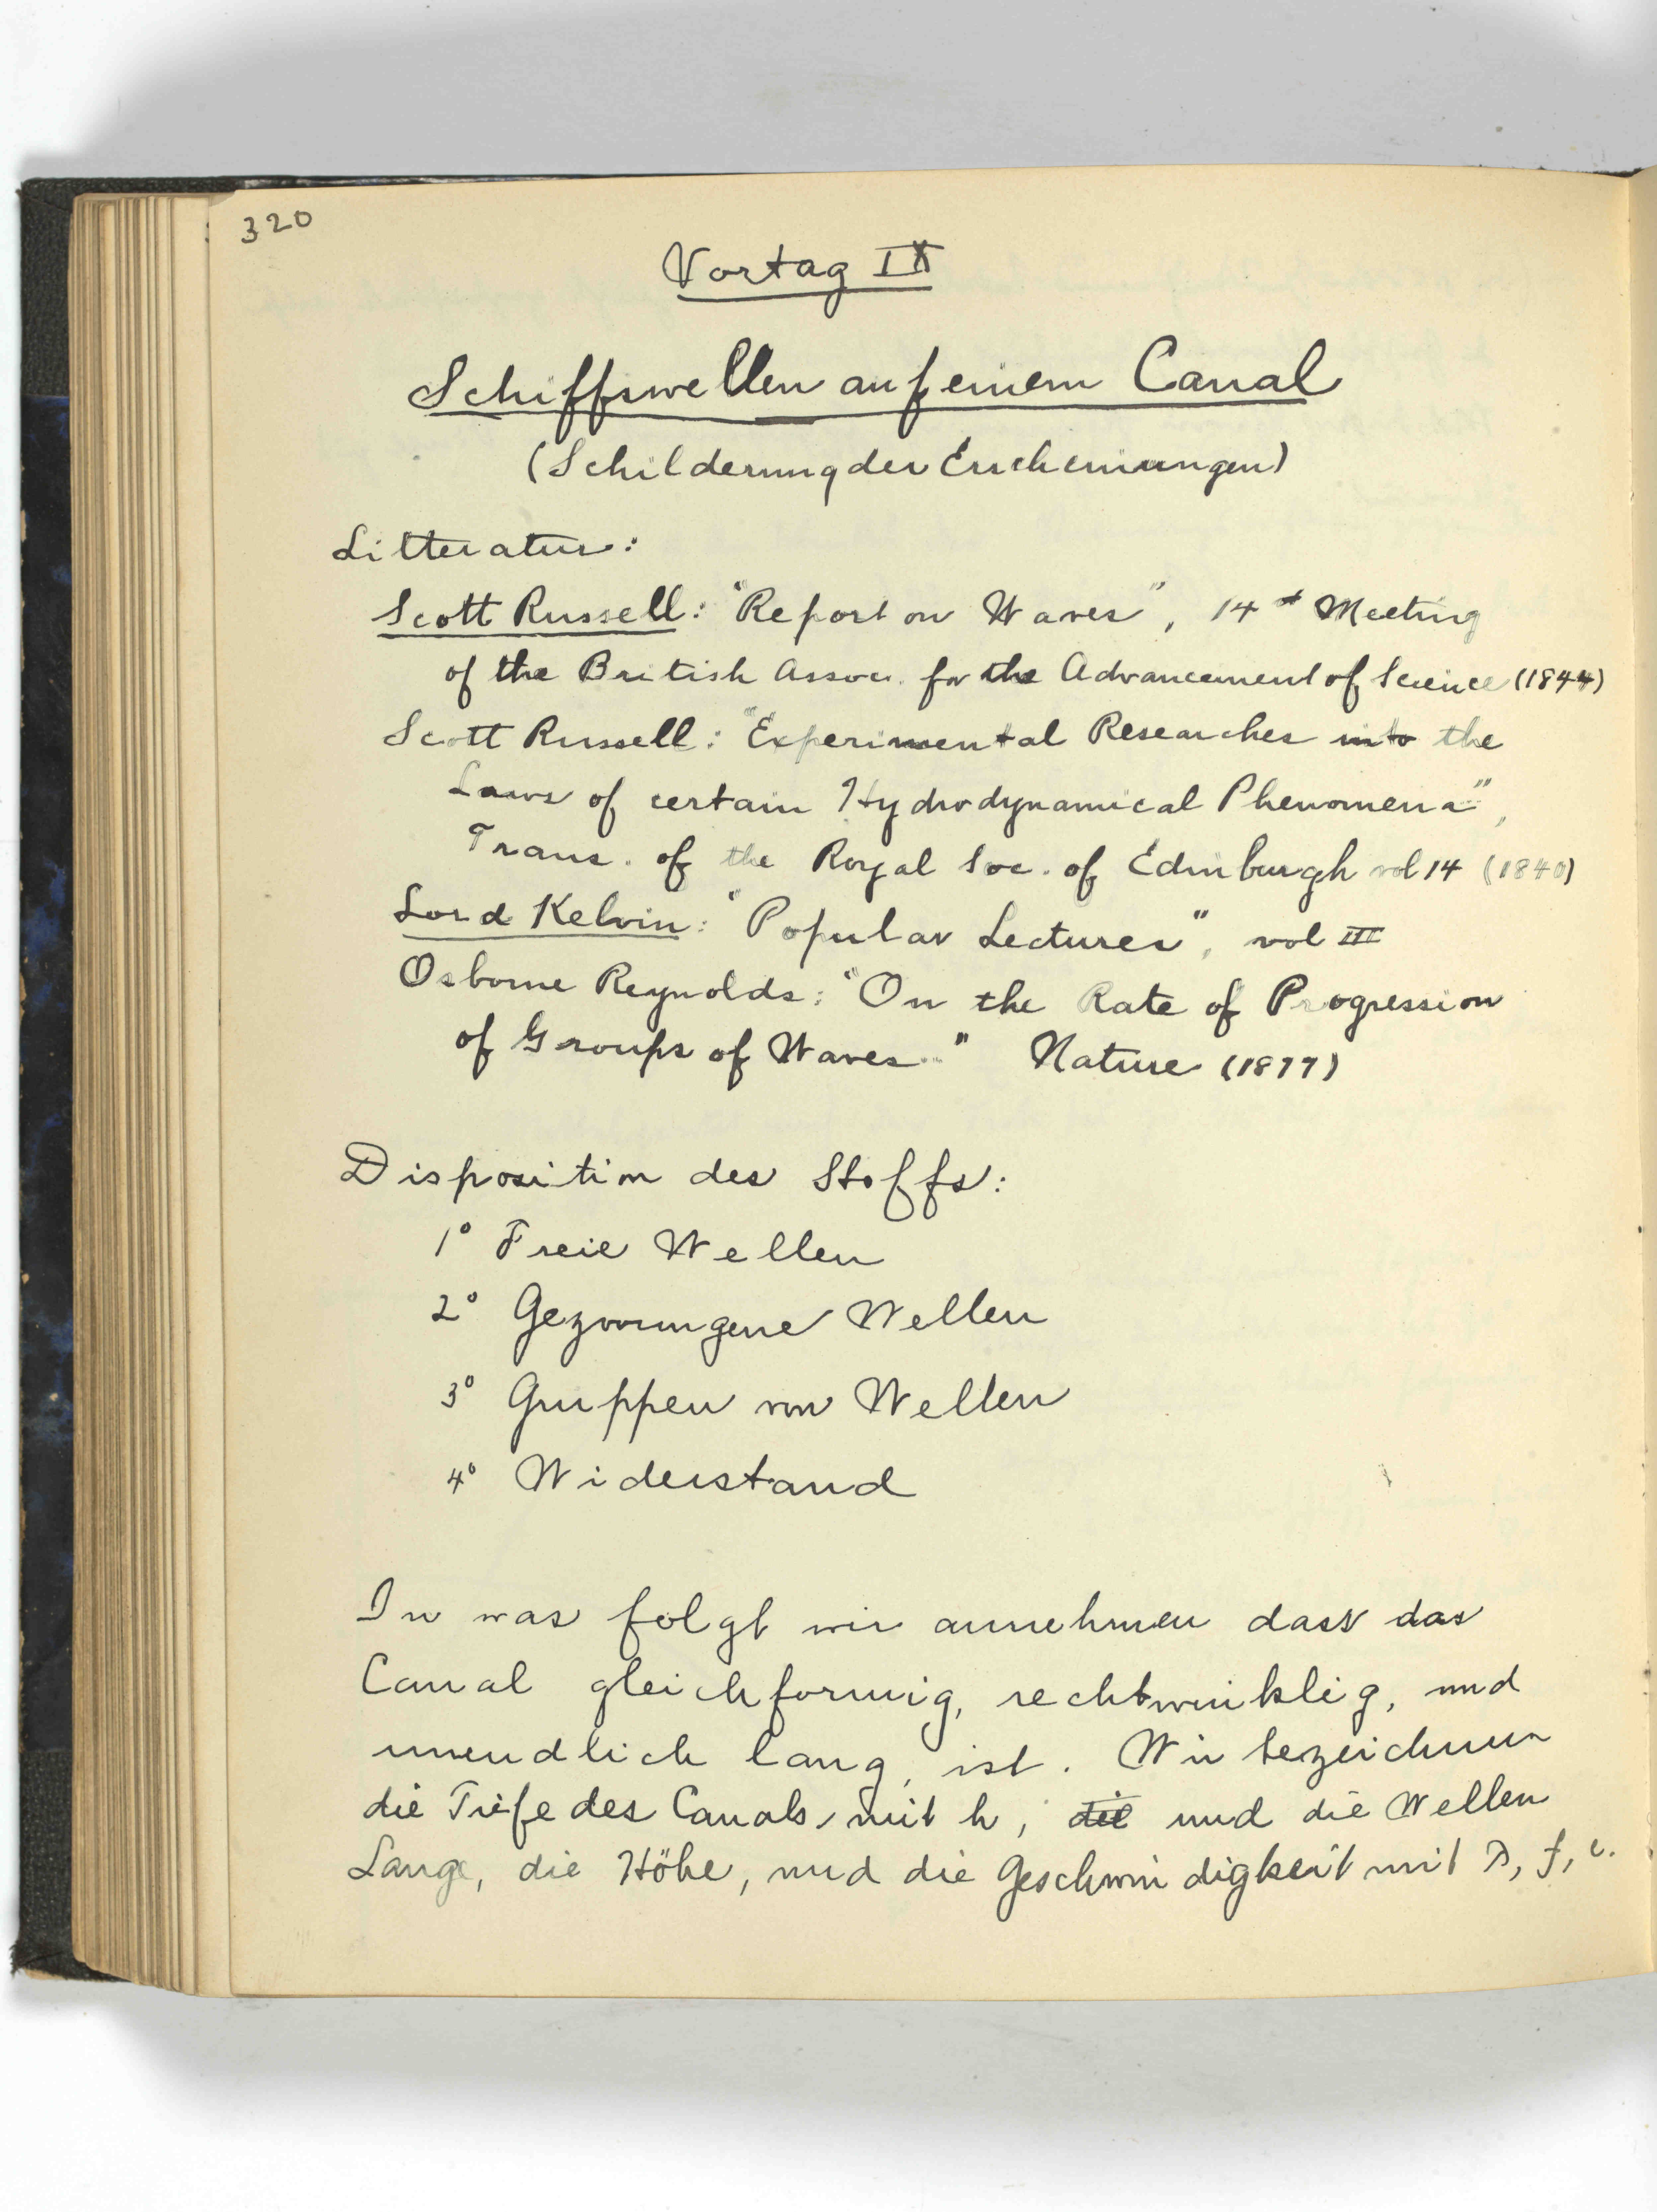 320
Vortag IX
Schiffswellen auf einem Canal
(Schilderung der Erscheinungen)
Litteratur:
Scott Russell: "Report on Waves", 14th Meeting
of the British Assoc. for the Advancement of Science (1844)
Scott Russell: "Experimental Researches into the
Laws of certain Hydrodynamical Phenomena",
Trans. of the Royal Soc. of Edinburgh vol 14 (1840)
Lord Kelvin: "Popular Lectures", vol III
Osborne Reynolds: "On the Rate of Progression
of Groups of Waves.." Nature (1877)
Disposition des Stoffs:
1° Freie Wellen
2° Gezwungene Wellen
3° Gruppen von Wellen
4° Widerstand
In was folgt wir annehmen dass das
Canal gleichformig, rechtwinklig, und
unendlich lang, ist. Wir bezeichnen
die Tiefe des Canals, mit h, die und die Wellen
Lange, die Höhe, und die Geschwindigkeit mit λ, f, c.